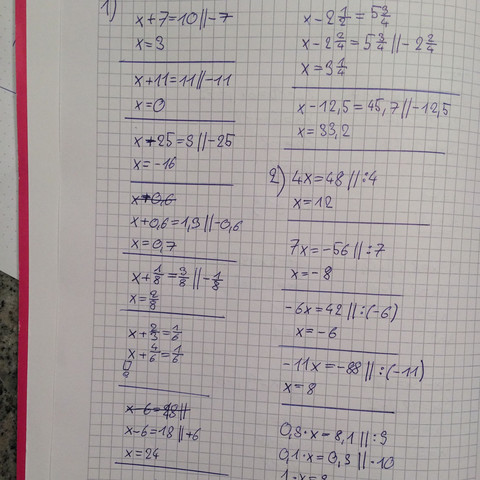 1)
x+7=10||-7
x=3
x+11=11||-11
x=0
x+25=3||-25
x=-16
x+0,6
x+0,6=1,3||-0,6
x=0,7
x+1/8=3/8||-1/8
x=2/8
x+2/3=1/6
x+4/6=1/6
x-6=18||
x-6=18||+6
x=24
x-2 1/2=5 3/4
x-2 2/4=5 3/4||-2 2/4
x=3 1/4
x-12,5=45,7||-12,5
x=33,2
2) 4x=48||:4
x=12
7x=-56||:7
x=-8
-6x=42||:(-6)
x=-6
-11x=-88||:(-11)
x=8
0,9·x=8,1||:9
0,1·x=0,9||·10